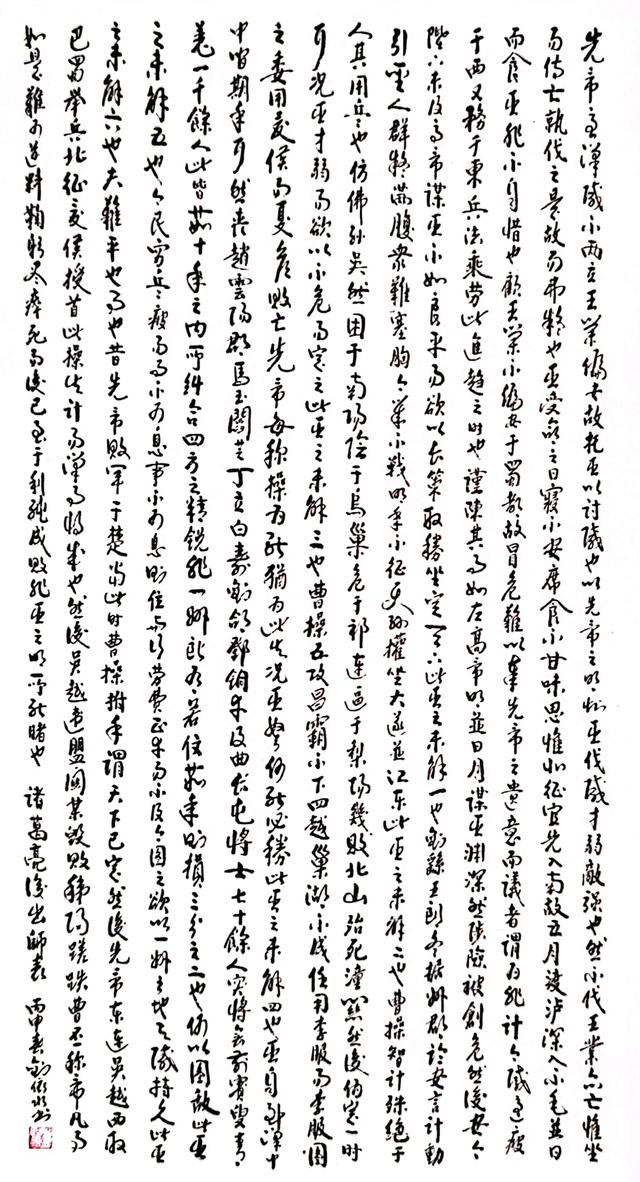 先帝慮漢賊不兩立王業偏安故託臣以討賊也以先帝之明知臣伐賊才弱敵強也然不伐王業亦亡惟坐
而待亡孰伐之是故而弗疑也臣受命之日寢不安席食不甘味思惟北征宜先入南故五月渡瀘深入不毛並日
而食臣非不自惜也顧王業不偏安于蜀都故冒危難以奉先帝之遺意而議者謂為非計今賊適疲
于西又務于東兵法乘勞此進趨之時也謹陳其事如左高帝明並日月謀臣淵深然涉險被創危然後安今
陛下未及高帝謀臣不如良平而欲以長策取勝坐定天下此臣之未解一也劉繇王朗各據州郡論安言計動
引聖人群疑滿腹衆難塞胸今歲不戰明年不征使孫權坐大遂並江東此臣之未解二也曹操智計殊絕于
人其用兵也仿佛孫吳然困于南陽險于烏巢危于祁連逼于黎陽幾敗北山殆死潼關然後僞定一時
耳況臣才弱而欲以不危而定之此臣之未解三也曹操五攻昌霸不下四越巢湖不成任用李服而李服圖
之委用夏侯而夏侯敗亡先帝每稱操為能猶有此失況臣駑何能必勝此臣之未解四也臣自到漢
中間期年耳然喪趙雲陽群馬玉閻芝丁立白壽劉郃鄧銅等及曲長屯將七十餘人突將無前賨叟青
羌一千餘人此皆數十年之內所糾合四方之精銳非一州所有若復數年則損三分之二也何以圖敵此臣
之未解五也今民窮兵疲而事不可息事不可息則住與行勞費正等而不及今圖之欲以一州之地與賊持久此臣
之未解六也夫難平者事也昔先帝敗軍于楚當此時曹操拊手謂天下已定然後先帝東連吳越西取
巴蜀舉兵北征夏侯授首此操失計而漢事將成也然後吳更違盟關某毀敗秭歸蹉跌曹丕稱帝凡事
如是難可逆料鞠躬盡瘁死而後已至于利鈍成敗非臣之明所能睹也 諸葛亮後出師表 丙申春劉